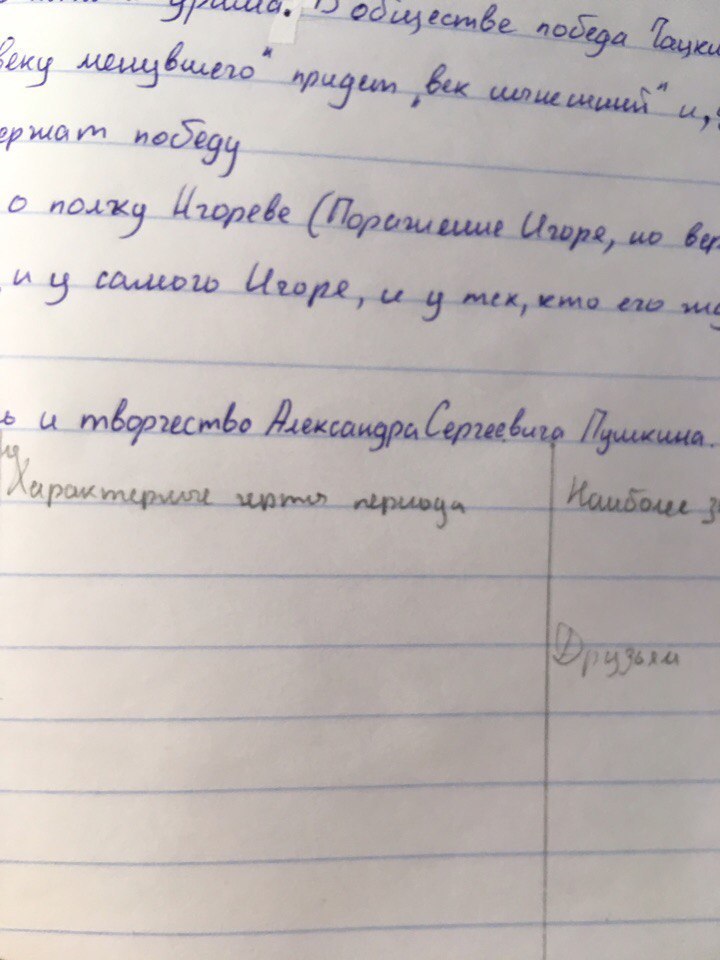 драма. В обществе победа Чацки
веку менувшего" придет „век нынешний" и,
ержат победу
о полку Игореве (Поражение Игоря, но вер
и у самого Игоря, и у тех, кто его жд
ь и творчество Александра Сергеевича Пушкина.
Характерные черты периода
Наиболее з
Друзьям